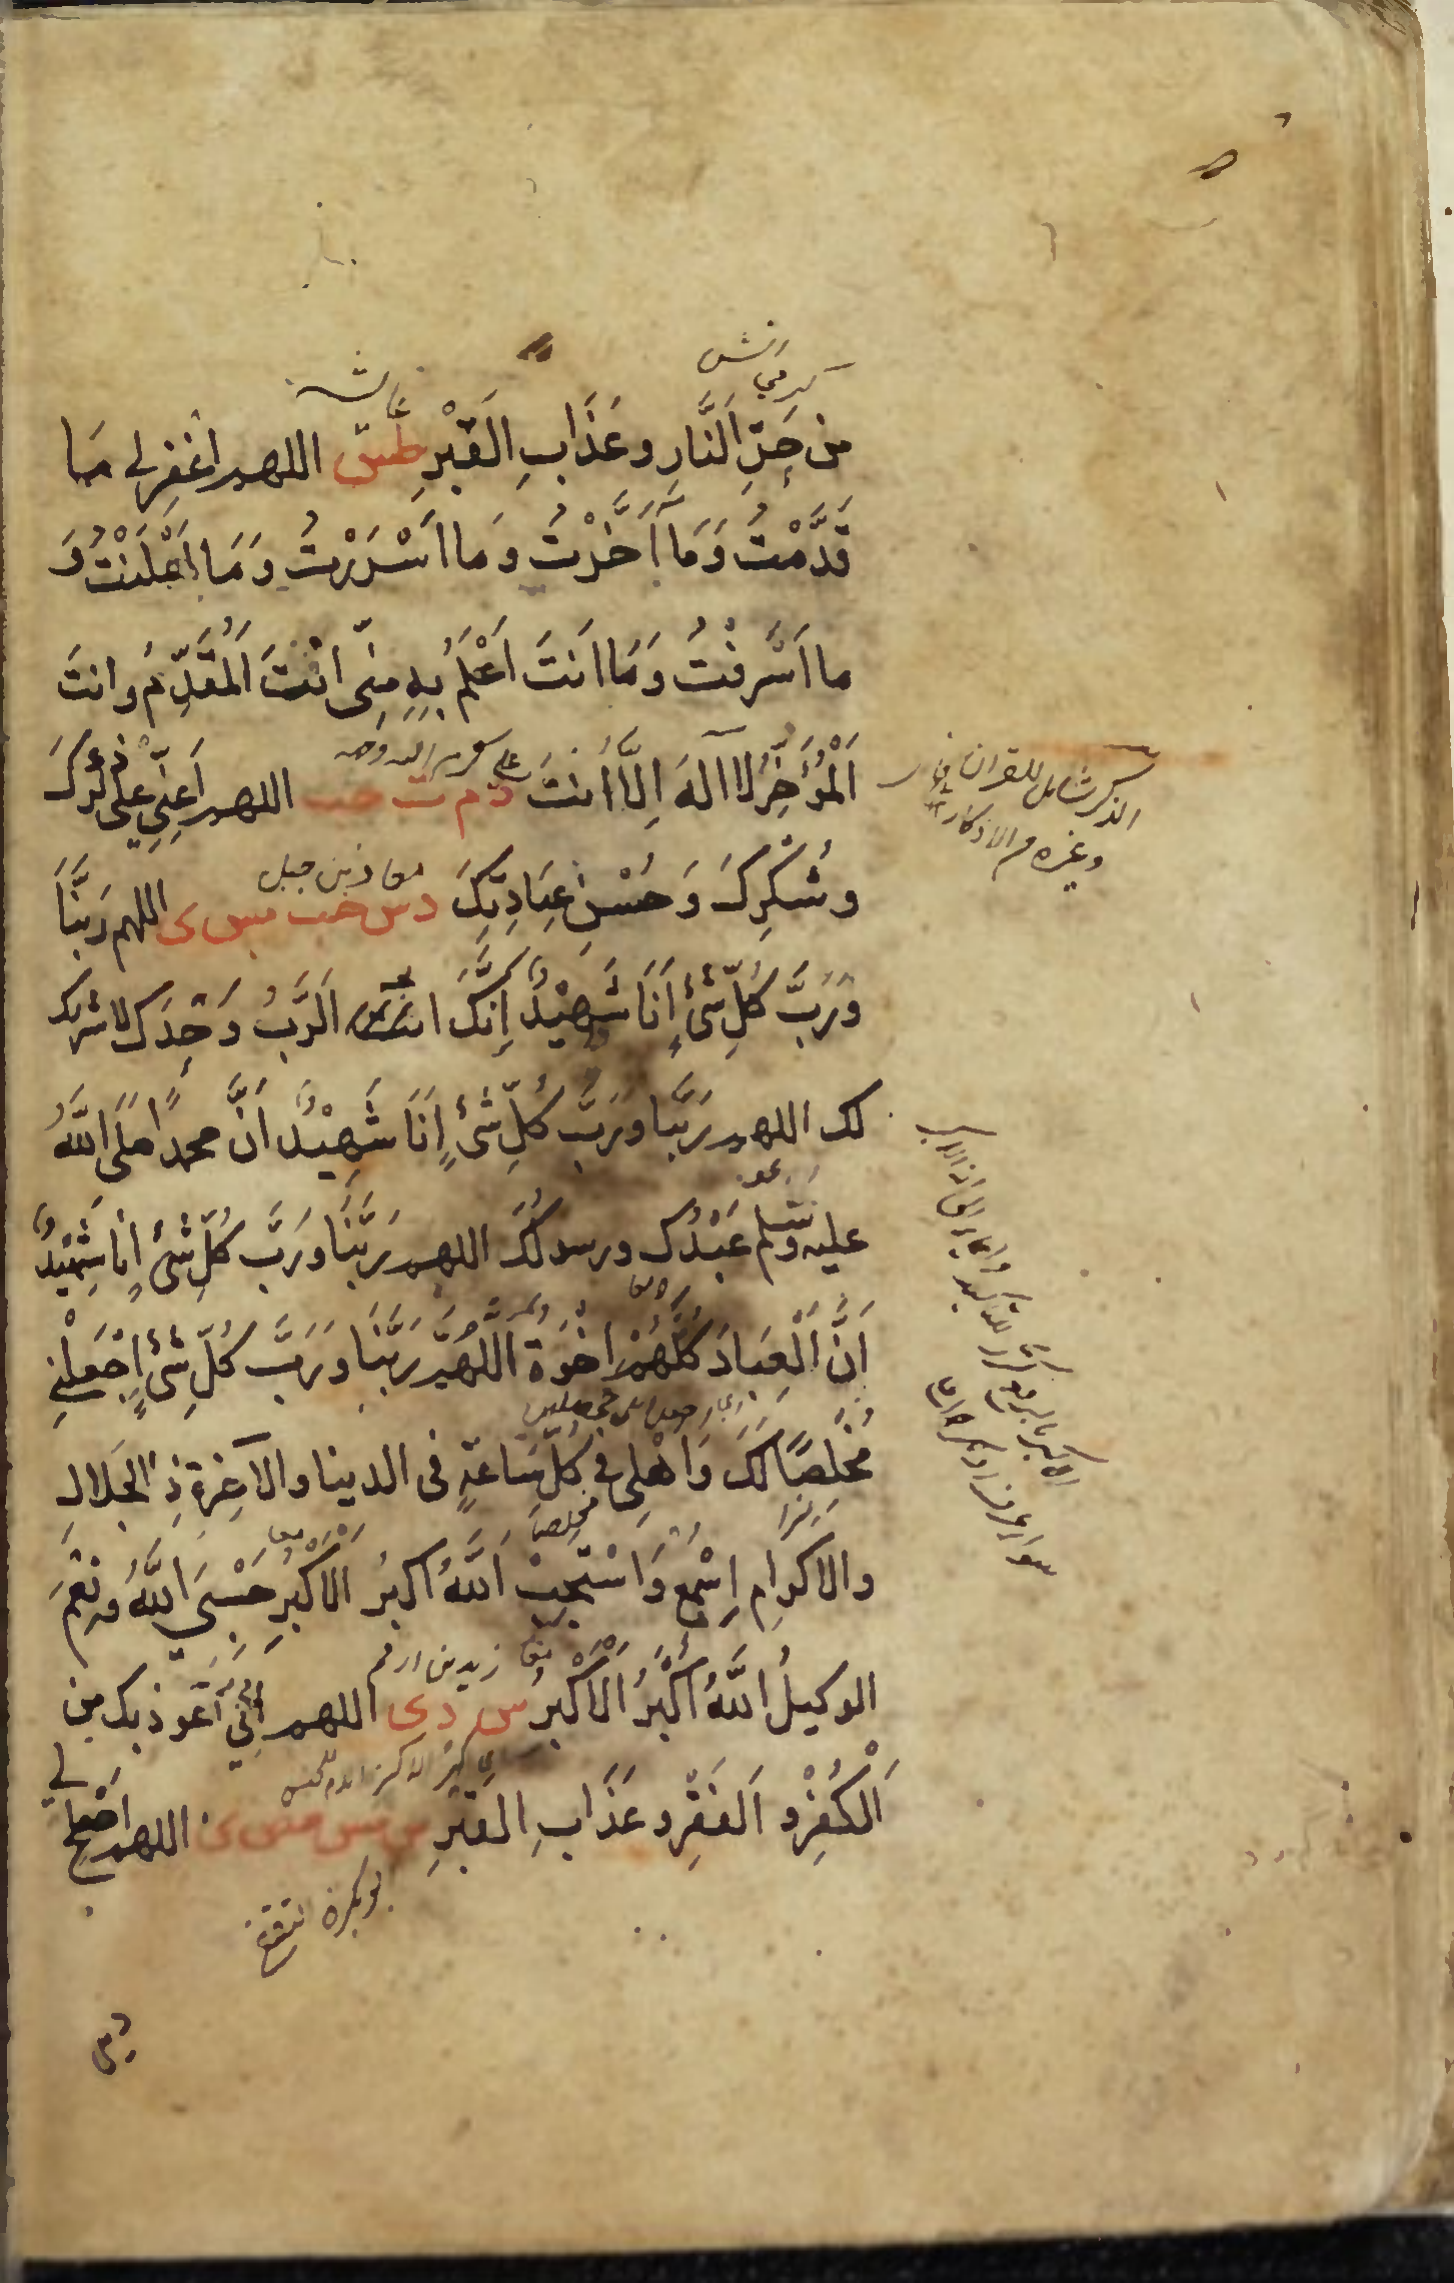 من حَرِّ النَّارِ وعَذَابِ الْقَبْرِ طس اللهم اغْفِرْ لي مَا
قَدَّمْتُ وَمَا أَخَّرْتُ وَمَا اَسْرَرْتُ وَمَا اَعْلَنْتُ وَ
ما اَسْرفْتُ وَمَا انَتَ اَعْلَمُ بِهِ مِنِّى انْتَ الْمُقَدِّمُ وانتَ
الْمُؤَخِّرُ لا اله اِلَّا اَنتَ د م ت حب اللهم اَعِنِّي على ذِكْرِكَ
وشُكْرِكَ وَحُسْنِ عِبَادتِكَ دس حب مس ى اللهم رَبَّنَا
وَرَبَّ كُلِّ شَىْءٍ اَنَا شَهِيْدٌ اِنَّكَ انت الرَّبُّ وَحْدَكَ لا شريك
لك اللهم رَبَّنا ورَبَّ كُلِّ شَىْءٍ اَنَا شَهِيْدٌ اَنَّ محمدًا صلى اللَّهُ
عليه وسلم عَبْدُكَ ورسولُكَ اللهم رَبَّنَا ورَبَّ كُلِّ شَىْءٍ اَنا شَهِيْدٌ
اَنَّ الْعِبَادَ كُلَّهُمْ اخْوَة اللَّهُمَّ رَبَّنَا ورَبَّ كُلِّ شَىْءٍ اجْعَلْنِي
مُخْلِصًا لَكَ وَاَهْلِى في كُلِّ سَاعَةٍ فى الدنيا والآخِرَةِ ذِ الْجَلالِ
والاكرامِ اِسْمَعْ وَاسْتَجِبْ اَللَّهُ اكبرُ الْاَكْبَرِ حَسْبِيَ اللَّهُ ونِعْمَ
الوكيلُ اللَّهُ اَكْبَرُ الْاَكْبَرِ س د ى اللهم اِنِّي اَعُوذ بك من
الْكُفْرِ و الفَقْرِ و عَذَابِ القَبْرِ س مس مص ى اللهم اصْلِحْ لي
معاذ بن جبل
زيد بن ارقم
الذكر شامل للقران
وغيره من الاذكار
مخلصا